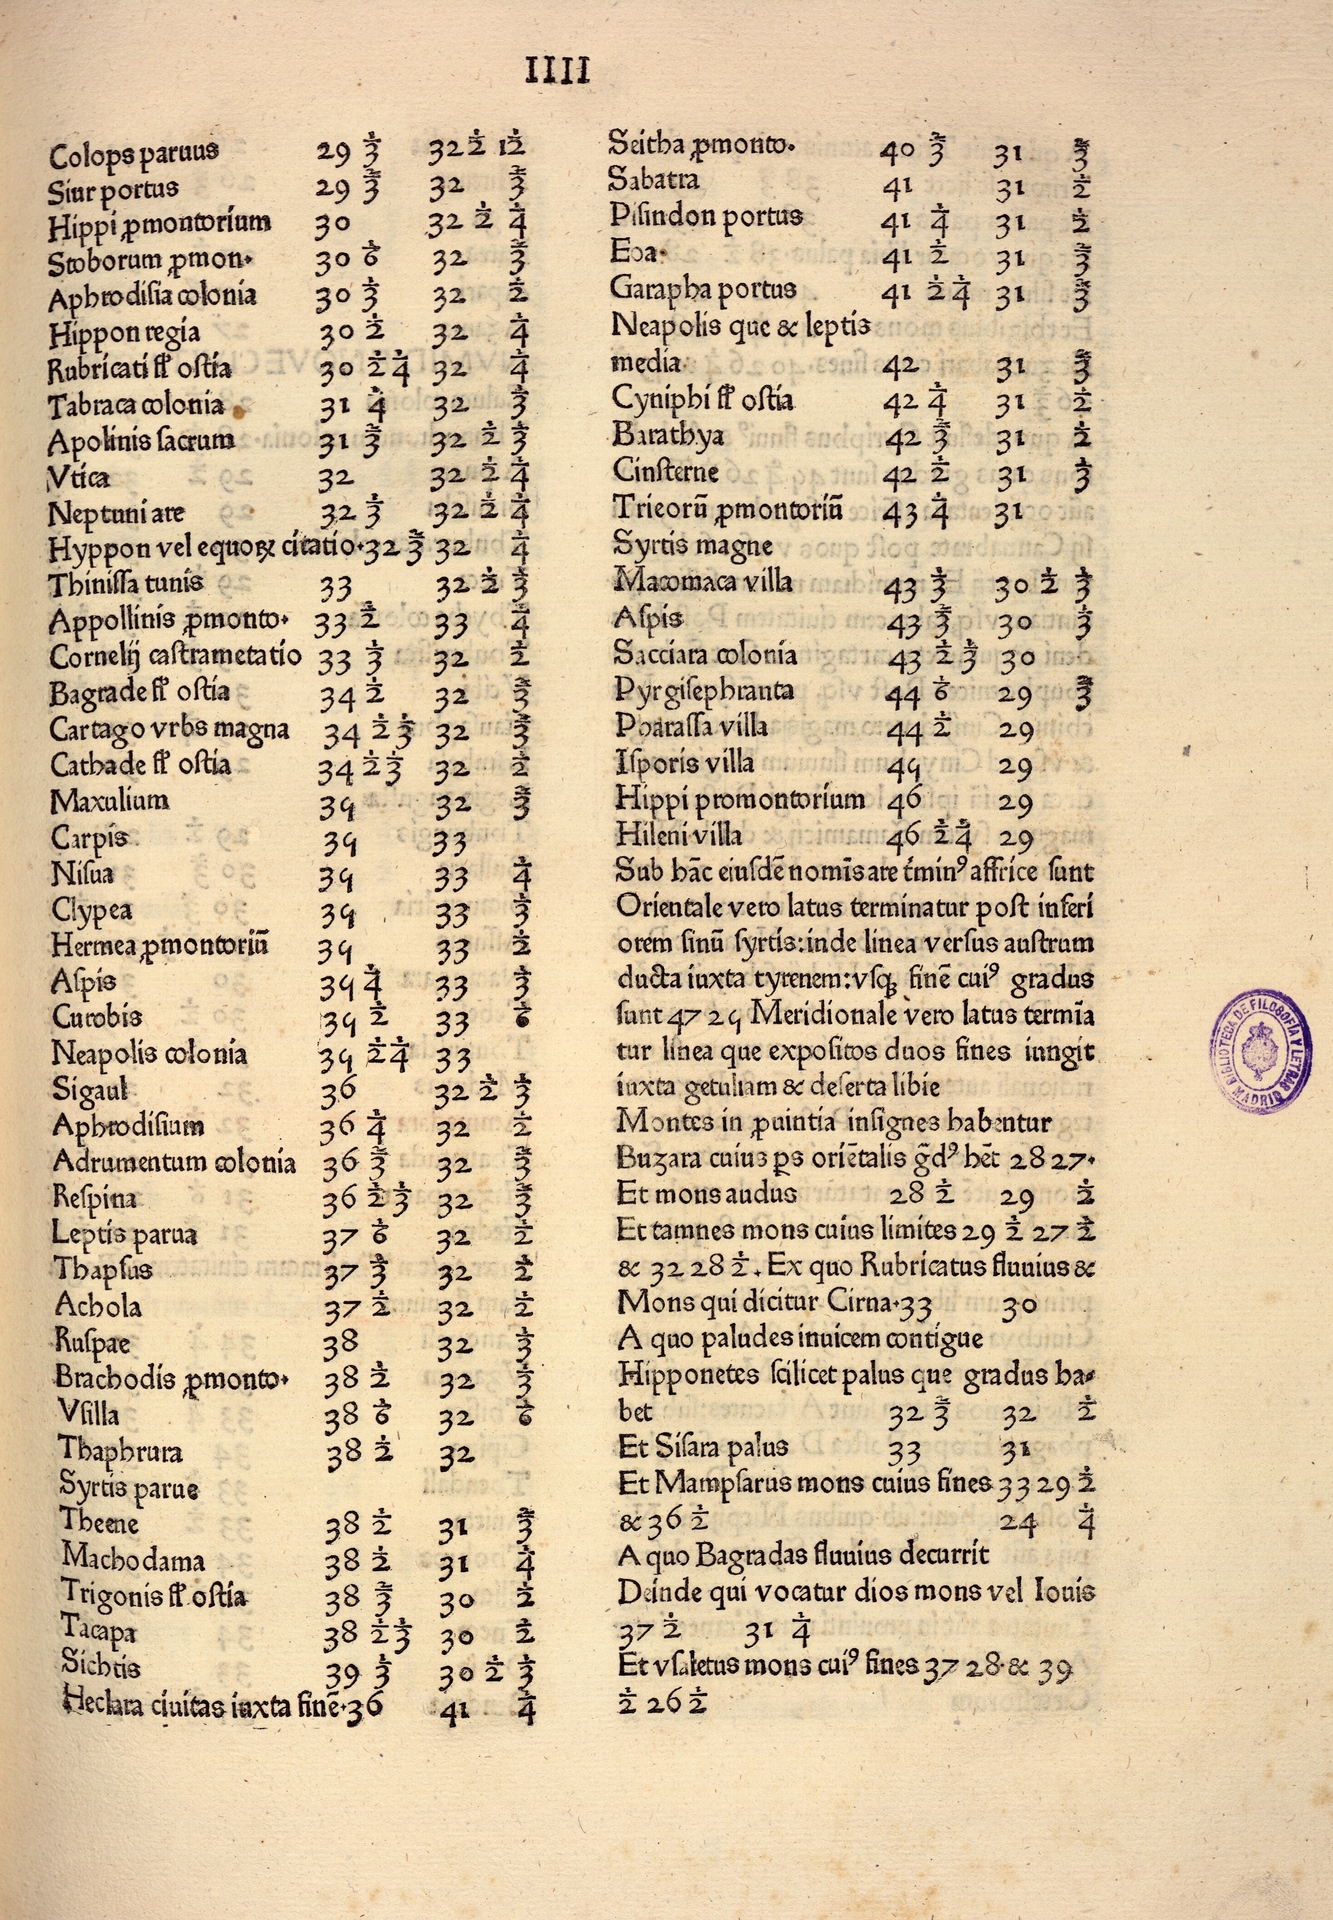 IIII
Colops paruus 29 ⅓ 32 ½ 1½
Siur portus 29 ⅔ 32 ⅔
Hippi ꝓmontorium 30 32 ½ ¼
Stoborum ꝓmon· 30 ⅙ 32 ⅔
Aphrodisia colonia 30 ⅓ 32 ½
Hippon regia 30 ½ 32 ¼
Rubricati fl̄ ostia 30 ½ ¼ 32 ¼
Tabraca colonia 31 ¼ 32 ⅓
Apolinis sacrum 31 ⅔ 32 ½ ⅓
Vtica 32 32 ½ ¼
Neptuni are 32 ⅓ 32 ½ ¼
Hyppon vel equoꝝ citatio·32 ⅔ 32 ¼
Thinissa tunis 33 32 ½ ⅓
Appollinis ꝓmonto· 33 ½ 33 ¼
Cornelij castrametatio 33 ⅓ 32 ½
Bagrade fl̄ ostia 34 ½ 32 ⅔
Cartago vrbs magna 34 ½ ⅓ 32 ⅔
Cathade fl̄ ostia 34 ½ ⅓ 32 ½
Maxulium 35 32 ⅔
Carpis 35 33
Nisua 35 33 ¼
Clypea 35 33 ⅓
Hermea ꝓmontoriū 35 33 ½
Aspis 35 ¼ 33 ⅓
Curobis 35 ½ 33 ⅙
Neapolis colonia 35 ½ ¼ 33
Sigaul 36 32 ½ ⅓
Aphrodisium 36 ¼ 32 ½
Adrumentum colonia 36 ⅔ 32 ⅔
Respina 36 ½ ⅓ 32 ⅔
Leptis parua 37 ⅙ 32 ½
Thapsus 37 ⅓ 32 ½
Achola 37 ½ 32 ½
Ruspae 38 32 ⅓
Brachodis ꝓmonto· 38 ½ 32 ⅓
Vsilla 38 ⅙ 32 ⅙
Thaphrura 38 ½ 32
Syrtis parue
Theene 38 ½ 31 ⅔
Machodama 38 ½ 31 ¼
Trigonis fl̄ ostia 38 ⅔ 30 ½
Tacapa 38 ½ ⅓ 30 ½
Sichtis 39 ⅓ 30 ½ ⅓
Heclara ciuitas iuxta finē·36 41 ¼
Seitha ꝓmonto· 40 ⅔ 31 ⅔
Sabatra 41 31 ½
Pisindon portus 41 ¼ 31 ½
Eoa· 41 ½ 31 ⅔
Garapha portus 41 ½ ¼ 31 ⅔
Neapolis que & leptis
media 42 31 ⅔
Cyniphi fl̄ ostia 42 ¼ 31 ½
Barathya 42 ⅔ 31 ½
Cinsterne 42 ½ 31 ⅓
Trieorū ꝓmontoriū 43 ¼ 31
Syrtis magne
Macomaca villa 43 ⅓ 30 ½ ⅓
Aspis 43 ⅔ 30 ⅓
Sacciara colonia 43 ½ ⅓ 30
Pyrgisephranta 44 ⅙ 29 ⅔
Poarassa villa 44 ½ 29
Isporis villa 45 29
Hippi promontorium 46 29
Hileni villa 46 ½ ¼ 29
Sub hāc eiusdē nomīs are t̄minꝰ affrice sunt
Orientale vero latus terminatur post inferi
orem sinū syrtis:inde linea versus austrum
ducta iuxta tyrenem:vsqꝫ finē cuiꝰ gradus
sunt 47 25 Meridionale vero latus termīa
tur linea que expositos duos fines iungit
iuxta getuliam & deserta libie
Montes in ꝓuintia insignes habentur
Buzara cuius ꝑs oriētalis g̃dꝰ hēt 28 27·
Et mons audus 28 ½ 29 ½
Et tamnes mons cuius limites 29 ½ 27 ½
& 32 28 ½. Ex quo Rubricatus fluuius &
Mons qui dicitur Cirna·33 30
A quo paludes inuicem contigue
Hipponetes scilicet palus que gradus ha-
bet 32 ⅔ 32 ½
Et Sisara palus 33 31
Et Mampsarus mons cuius fines 33 29 ½
& 36 ½ 24 ¼
A quo Bagradas fluuius decurrit
Deinde qui vocatur dios mons vel Iouis
37 ½ 31 ¼
Et vsaletus mons cuiꝰ fines 37 28·& 39
½ 26 ½
BIBLIOTECA DE FILOSOFÍA Y LETRAS
MADRID